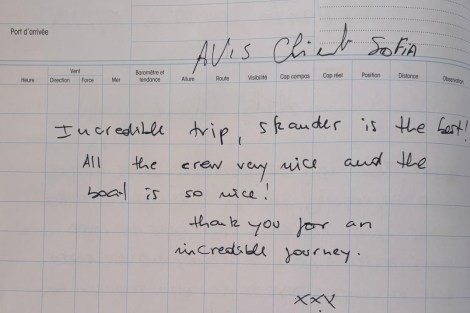 Port d'arrivée
AVIS Client SOFIA
Vent
Heure Direction Force Mer Baromètre et tendance Allure Route Visibilité Cap compas Cap réel Position Distance Observations
Incredible trip, skander is the best!
All the crew very nice and the
boat is so nice!
thank you for an
incredible journey.
xxx